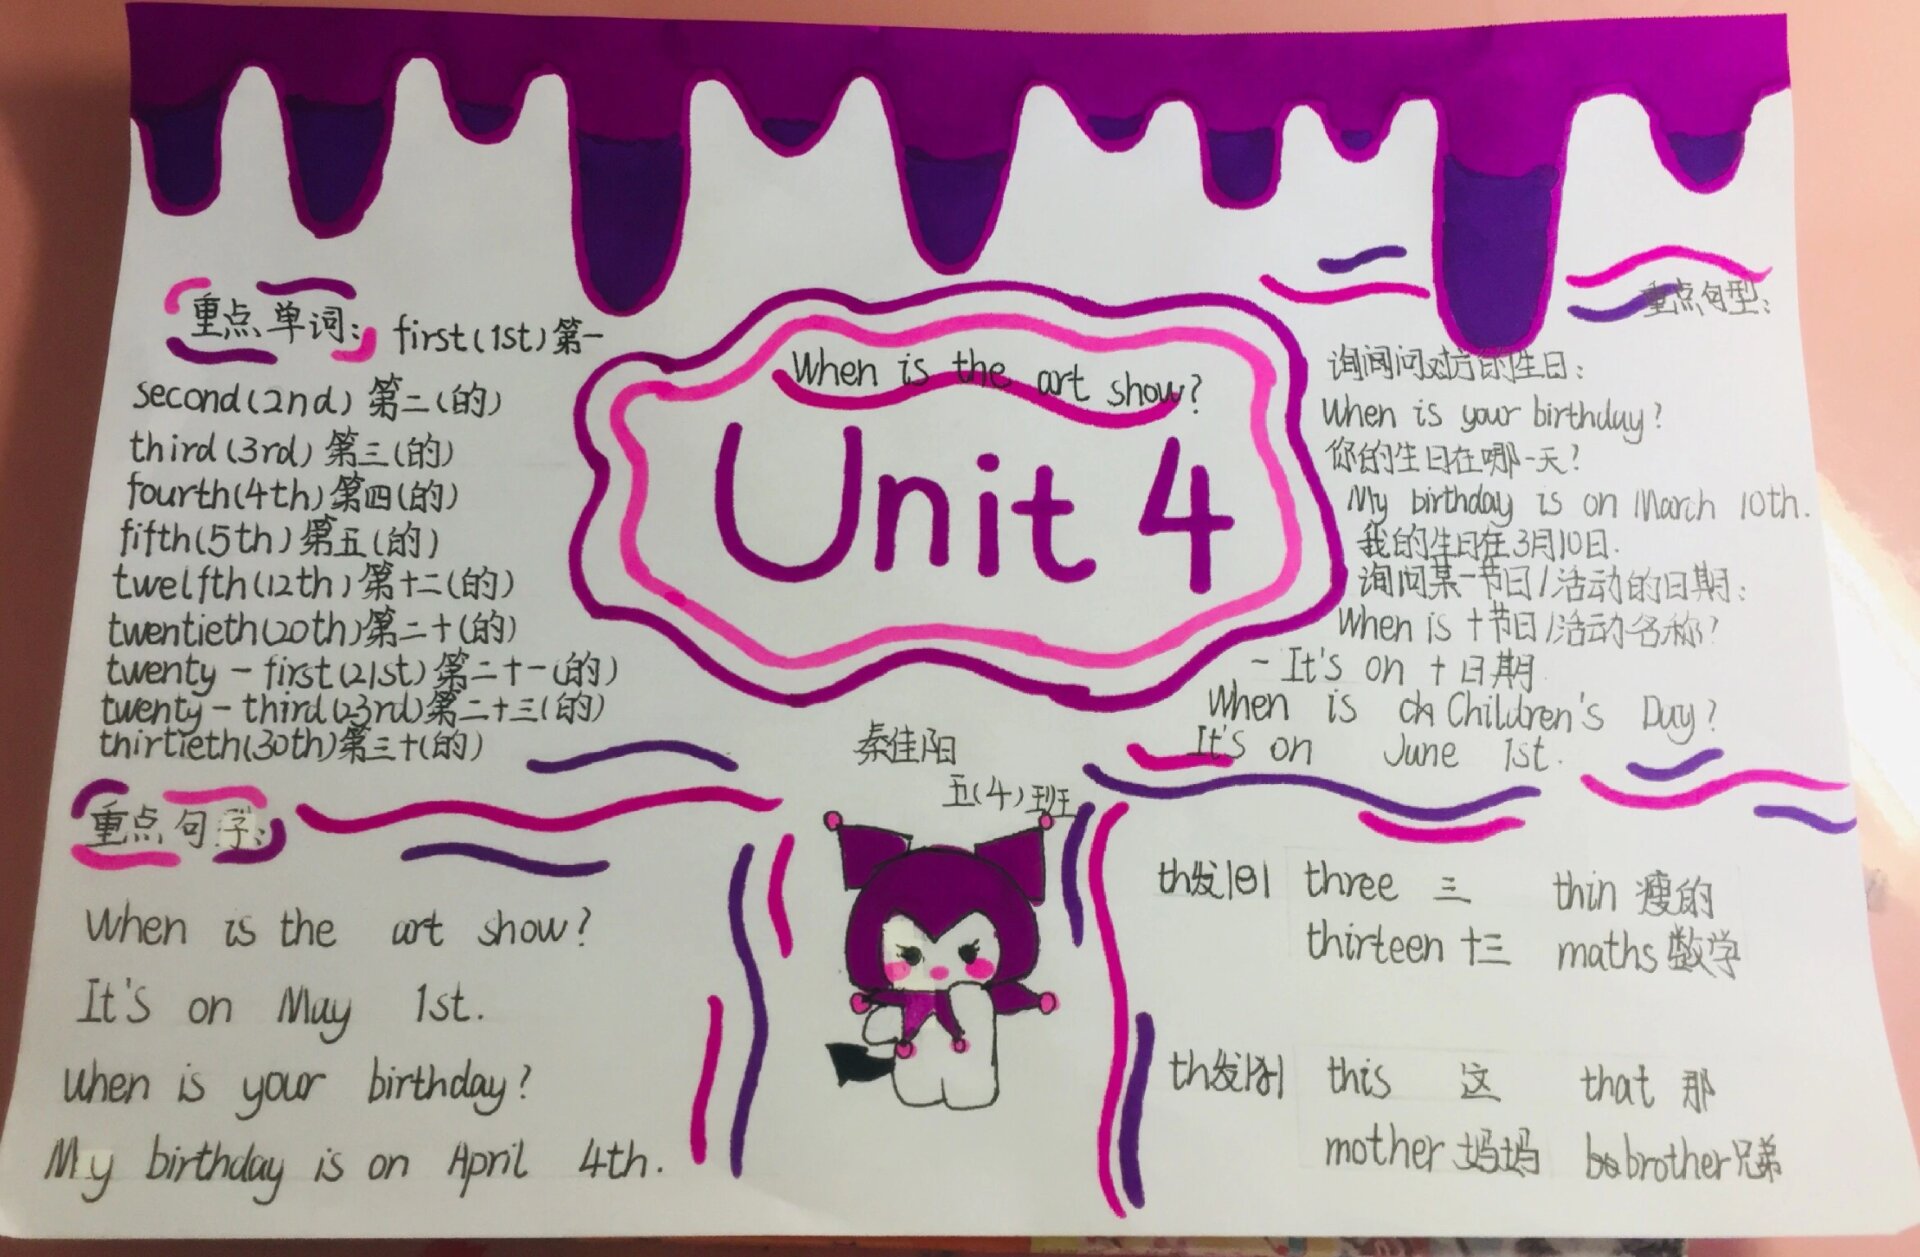 重点单词:
first(1st)第一
second(2nd)第二(的)
third(3rd)第三(的)
fourth(4th)第四(的)
fifth(5th)第五(的)
twelfth(12th)第十二(的)
twentieth(20th)第二十(的)
twenty-first(21st)第二十一(的)
twenty-third(23rd)第二十三(的)
thirtieth(30th)第三十(的)
When is the art show?
Unit 4
秦佳阳
五(4)班
重点句型:
询问对方的生日:
When is your birthday?
你的生日在哪一天?
My birthday is on March 10th.
我的生日在3月10日.
询问某一节日/活动的日期:
When is +节日/活动名称?
-It's on +日期
When is Children's Day?
It's on June 1st.
重点句子:
When is the art show?
It's on May 1st.
When is your birthday?
My birthday is on April 4th.
th发|θ| three 三 thin 瘦的
thirteen 十三 maths 数学
th发|ð| this 这 that 那
mother 妈妈 brother 兄弟